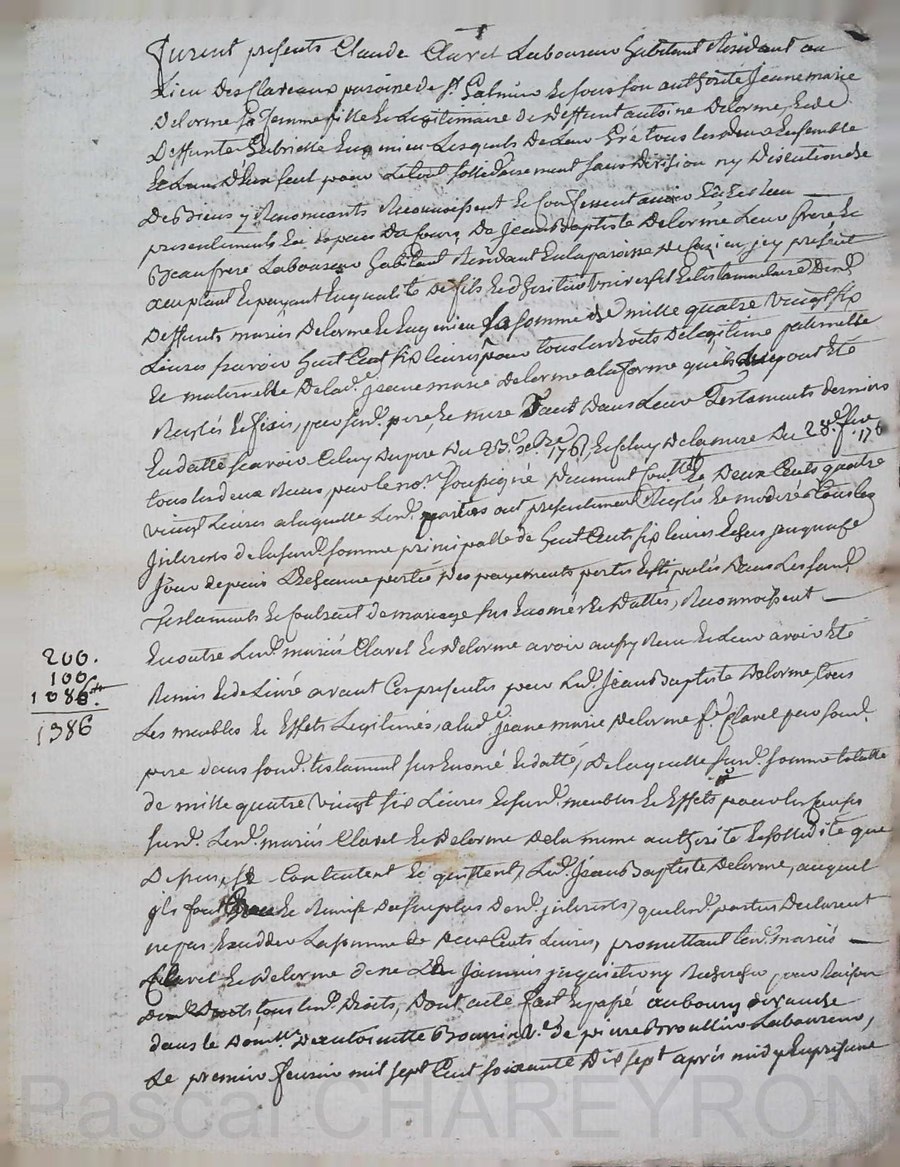 furent presents Claude Clavel Laboureur habitant Résidant au
Lieu des Clareaux paroisse de St. Galmier et sous son authorité Jeane marie
Delorme sa femme fille et Legitimaire de deffunt antoine Delorme, et de
deffunte Gabrielle Eugenieu Lesquels de Leur gré tous les deux Ensemble
et L'un d'Eux seul pour Le tout sollidairement sans division ny discution de
de Biens y Renonçants Reconnoissent et confessent avoir
presentement En Espece du cours, De Jean Baptiste Delorme Leur frere et
Beaufrere Laboureur habitant Résidant En la paroisse de jcy présent
acceptant et payant En qualité de fils et héritier universel et testamentaire desd.
deffunts mariés Delorme et Eugenieu La somme de mille quatre vingt six
Livres scavoir huit Cent six livres pour tous les droits De légitime paternelle
et maternelle De lad. Jeane marie Delorme a la forme quils ont été
Reglés et fixés, par sesd. pere, et mere Tant Dans Leur Testaments derniers
En datte scavoir Celuy du pere du 23e. 176 , et Celuy De la mere Du 28e. 176
tous les deux Reçus par le nore. soussigné Duement Conllés. et Deux Cents quatre
vingt Livres a laquelle Lesd. parties ont presentement Reglés et modérés tous les
jnterets de la susd. somme principalle de huit Cents six livres Echus jusqua ce
jour depuis L'Echeance portée des payements portés et stipulés Dans Les susd.
Testaments et Contract de mariage sus Enoncés et Dattés, Reconnoissent
En outre Lesd. mariés Clavel et Delorme avoir aussy Reçu et Leur avoir été
Remis et delivré avant Ces presentes par Led. Jean Baptiste Delorme, tous
Les meubles et Effets Legitimés, a lad. Jeane marie Delorme fe. Clavel par sond.
pere dans sond. testament sus Enoncé et datté, De laquelle susd. somme totalle
de mille quatre vingt six Livres et susd. meubles et Effets
susd. Lesd. mariés Clavel et Delorme De la meme authorité et solidité que
Dessus, se Contentent et quittent, Led. Jean Baptiste Delorme, auquel
jls font et Remise du surplus desd. jnterets, que lesd. parties Declarent
ne pas Exceder La somme de deux Cents Livres, promettant lesd. mariés
Clavel et Delorme de ne Le Jamais jnquieter ny Rechercher pour Raison
desd. Droits, Dont acte fait et passé au bourg
dans le Domlle. D'antoinette ve. de pierre Laboureur,
Le premier feurier mil sept Cent soixante Dix sept après midy En presance
200.
100.
1086.
1386
Pascal CHAREYRON